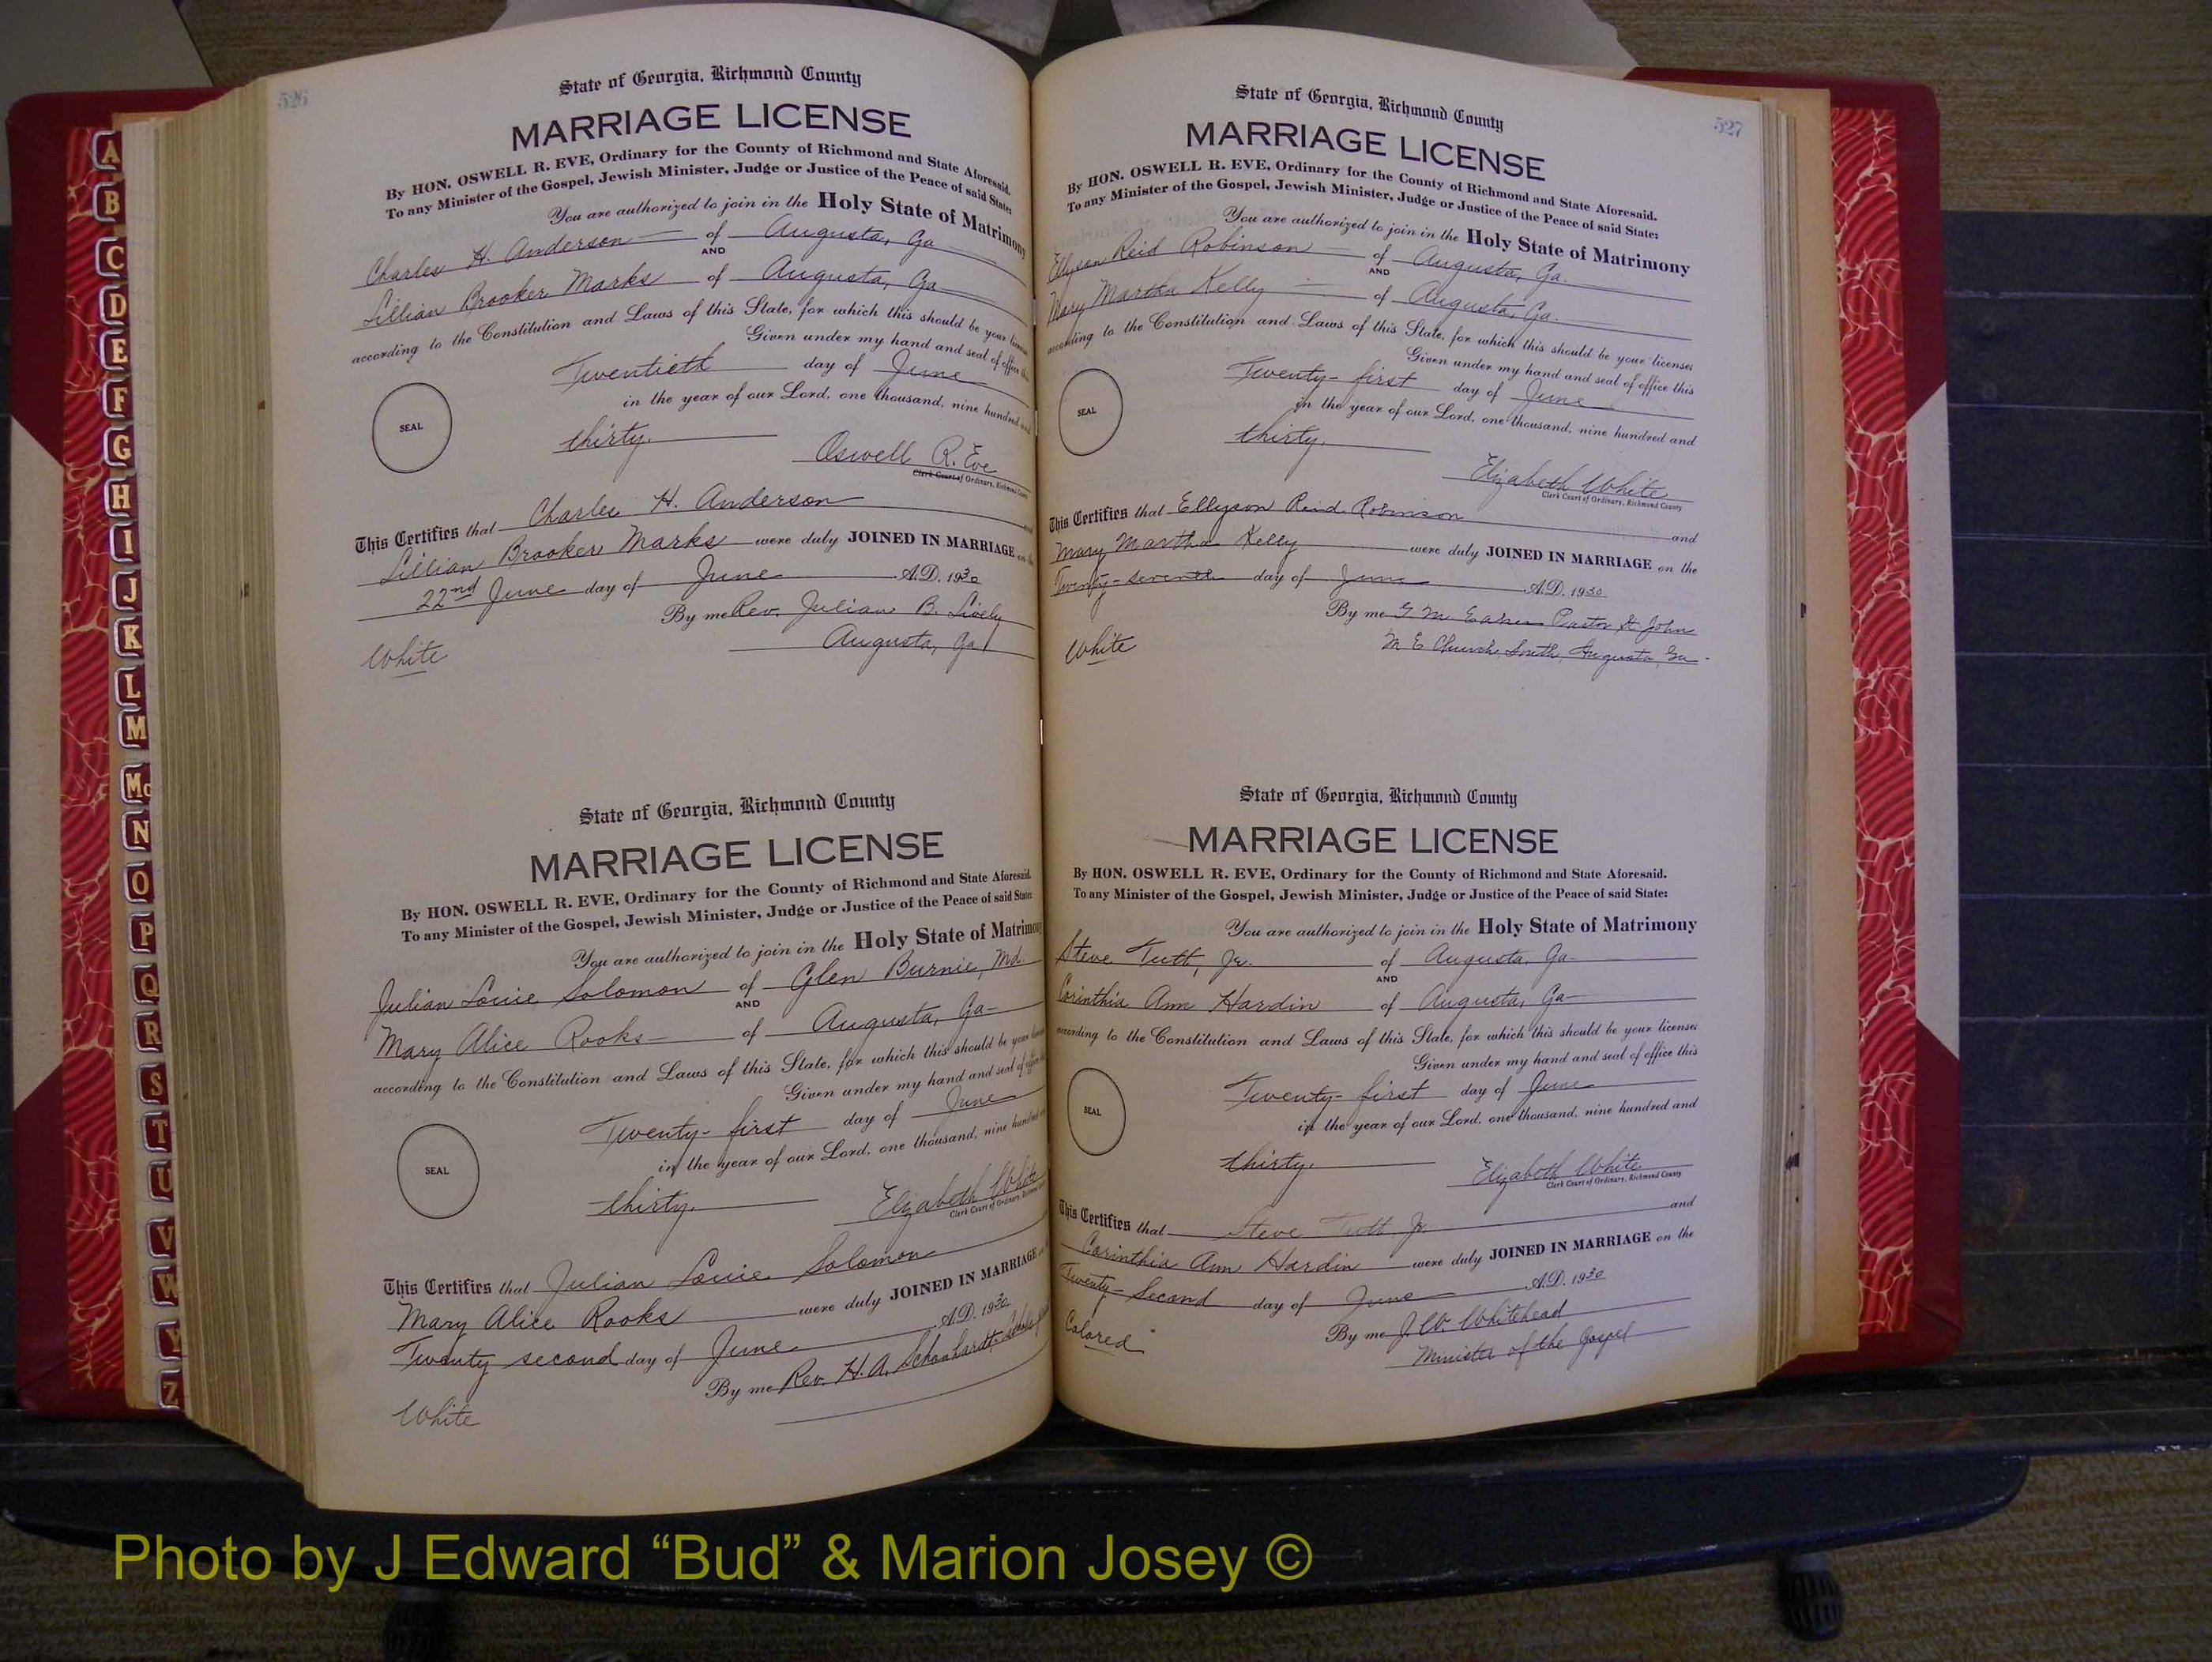 526
State of Georgia, Richmond County
MARRIAGE LICENSE
By HON. OSWELL R. EVE, Ordinary for the County of Richmond and State Aforesaid.
To any Minister of the Gospel, Jewish Minister, Judge or Justice of the Peace of said State:
You are authorized to join in the Holy State of Matrimony
Charles H. Anderson of Augusta, Ga
AND
Lillian Brooker Marks of Augusta, Ga
according to the Constitution and Laws of this State, for which this should be your
Given under my hand and seal of office this
Twentieth day of June
in the year of our Lord, one thousand, nine hundred and
SEAL
thirty.
Oswell R. Eve
Clerk Court of Ordinary, Richmond County
This Certifies that Charles H. Anderson and
Lillian Brooker Marks were duly JOINED IN MARRIAGE on the
22nd June day of June A.D. 1930
By me Rev. Julian B. Lively
Augusta, Ga
White
State of Georgia, Richmond County
MARRIAGE LICENSE
By HON. OSWELL R. EVE, Ordinary for the County of Richmond and State Aforesaid.
To any Minister of the Gospel, Jewish Minister, Judge or Justice of the Peace of said State:
You are authorized to join in the Holy State of Matrimony
Julian Louie Solomon of Glen Burnie, Md.
AND
Mary Alice Rooks of Augusta, Ga
according to the Constitution and Laws of this State, for which this should be your
Given under my hand and seal of office
Twenty-first day of June
in the year of our Lord, one thousand, nine hundred
SEAL
thirty.
Elizabeth White
Clerk Court of Ordinary, Richmond
This Certifies that Julian Louie Solomon
Mary Alice Rooks were duly JOINED IN MARRIAGE
Twenty second day of June A.D. 1930
By me Rev. H. A. Schonhardt
White
527
State of Georgia, Richmond County
MARRIAGE LICENSE
By HON. OSWELL R. EVE, Ordinary for the County of Richmond and State Aforesaid.
To any Minister of the Gospel, Jewish Minister, Judge or Justice of the Peace of said State:
You are authorized to join in the Holy State of Matrimony
Ellyson Reid Robinson of Augusta, Ga.
AND
Mary Martha Kelly of Augusta, Ga.
according to the Constitution and Laws of this State, for which this should be your licenses
Given under my hand and seal of office this
Twenty-first day of June
in the year of our Lord, one thousand, nine hundred and
SEAL
thirty.
Elizabeth White
Clerk Court of Ordinary, Richmond County
This Certifies that Ellyson Reid Robinson and
Mary Martha Kelly were duly JOINED IN MARRIAGE on the
Twenty-seventh day of June A.D. 1930
By me G M Pastor St John
M E Church South, Augusta, Ga.
White
State of Georgia, Richmond County
MARRIAGE LICENSE
By HON. OSWELL R. EVE, Ordinary for the County of Richmond and State Aforesaid.
To any Minister of the Gospel, Jewish Minister, Judge or Justice of the Peace of said State:
You are authorized to join in the Holy State of Matrimony
Steve Tutt, Jr. of Augusta, Ga
AND
Corinthia Ann Hardin of Augusta, Ga
according to the Constitution and Laws of this State, for which this should be your licenses
Given under my hand and seal of office this
Twenty-first day of June
in the year of our Lord, one thousand, nine hundred and
SEAL
thirty.
Elizabeth White
Clerk Court of Ordinary, Richmond County
This Certifies that Steve Tutt Jr. and
Corinthia Ann Hardin were duly JOINED IN MARRIAGE on the
Twenty-Second day of June A.D. 1930
By me J. W. Whitehead
Minister of the Gospel
Colored
A
B
C
D
E
F
G
H
I
J
K
L
M
Mc
N
O
P
Q
R
S
T
U
V
W
Y
Z
Photo by J Edward “Bud” & Marion Josey ©